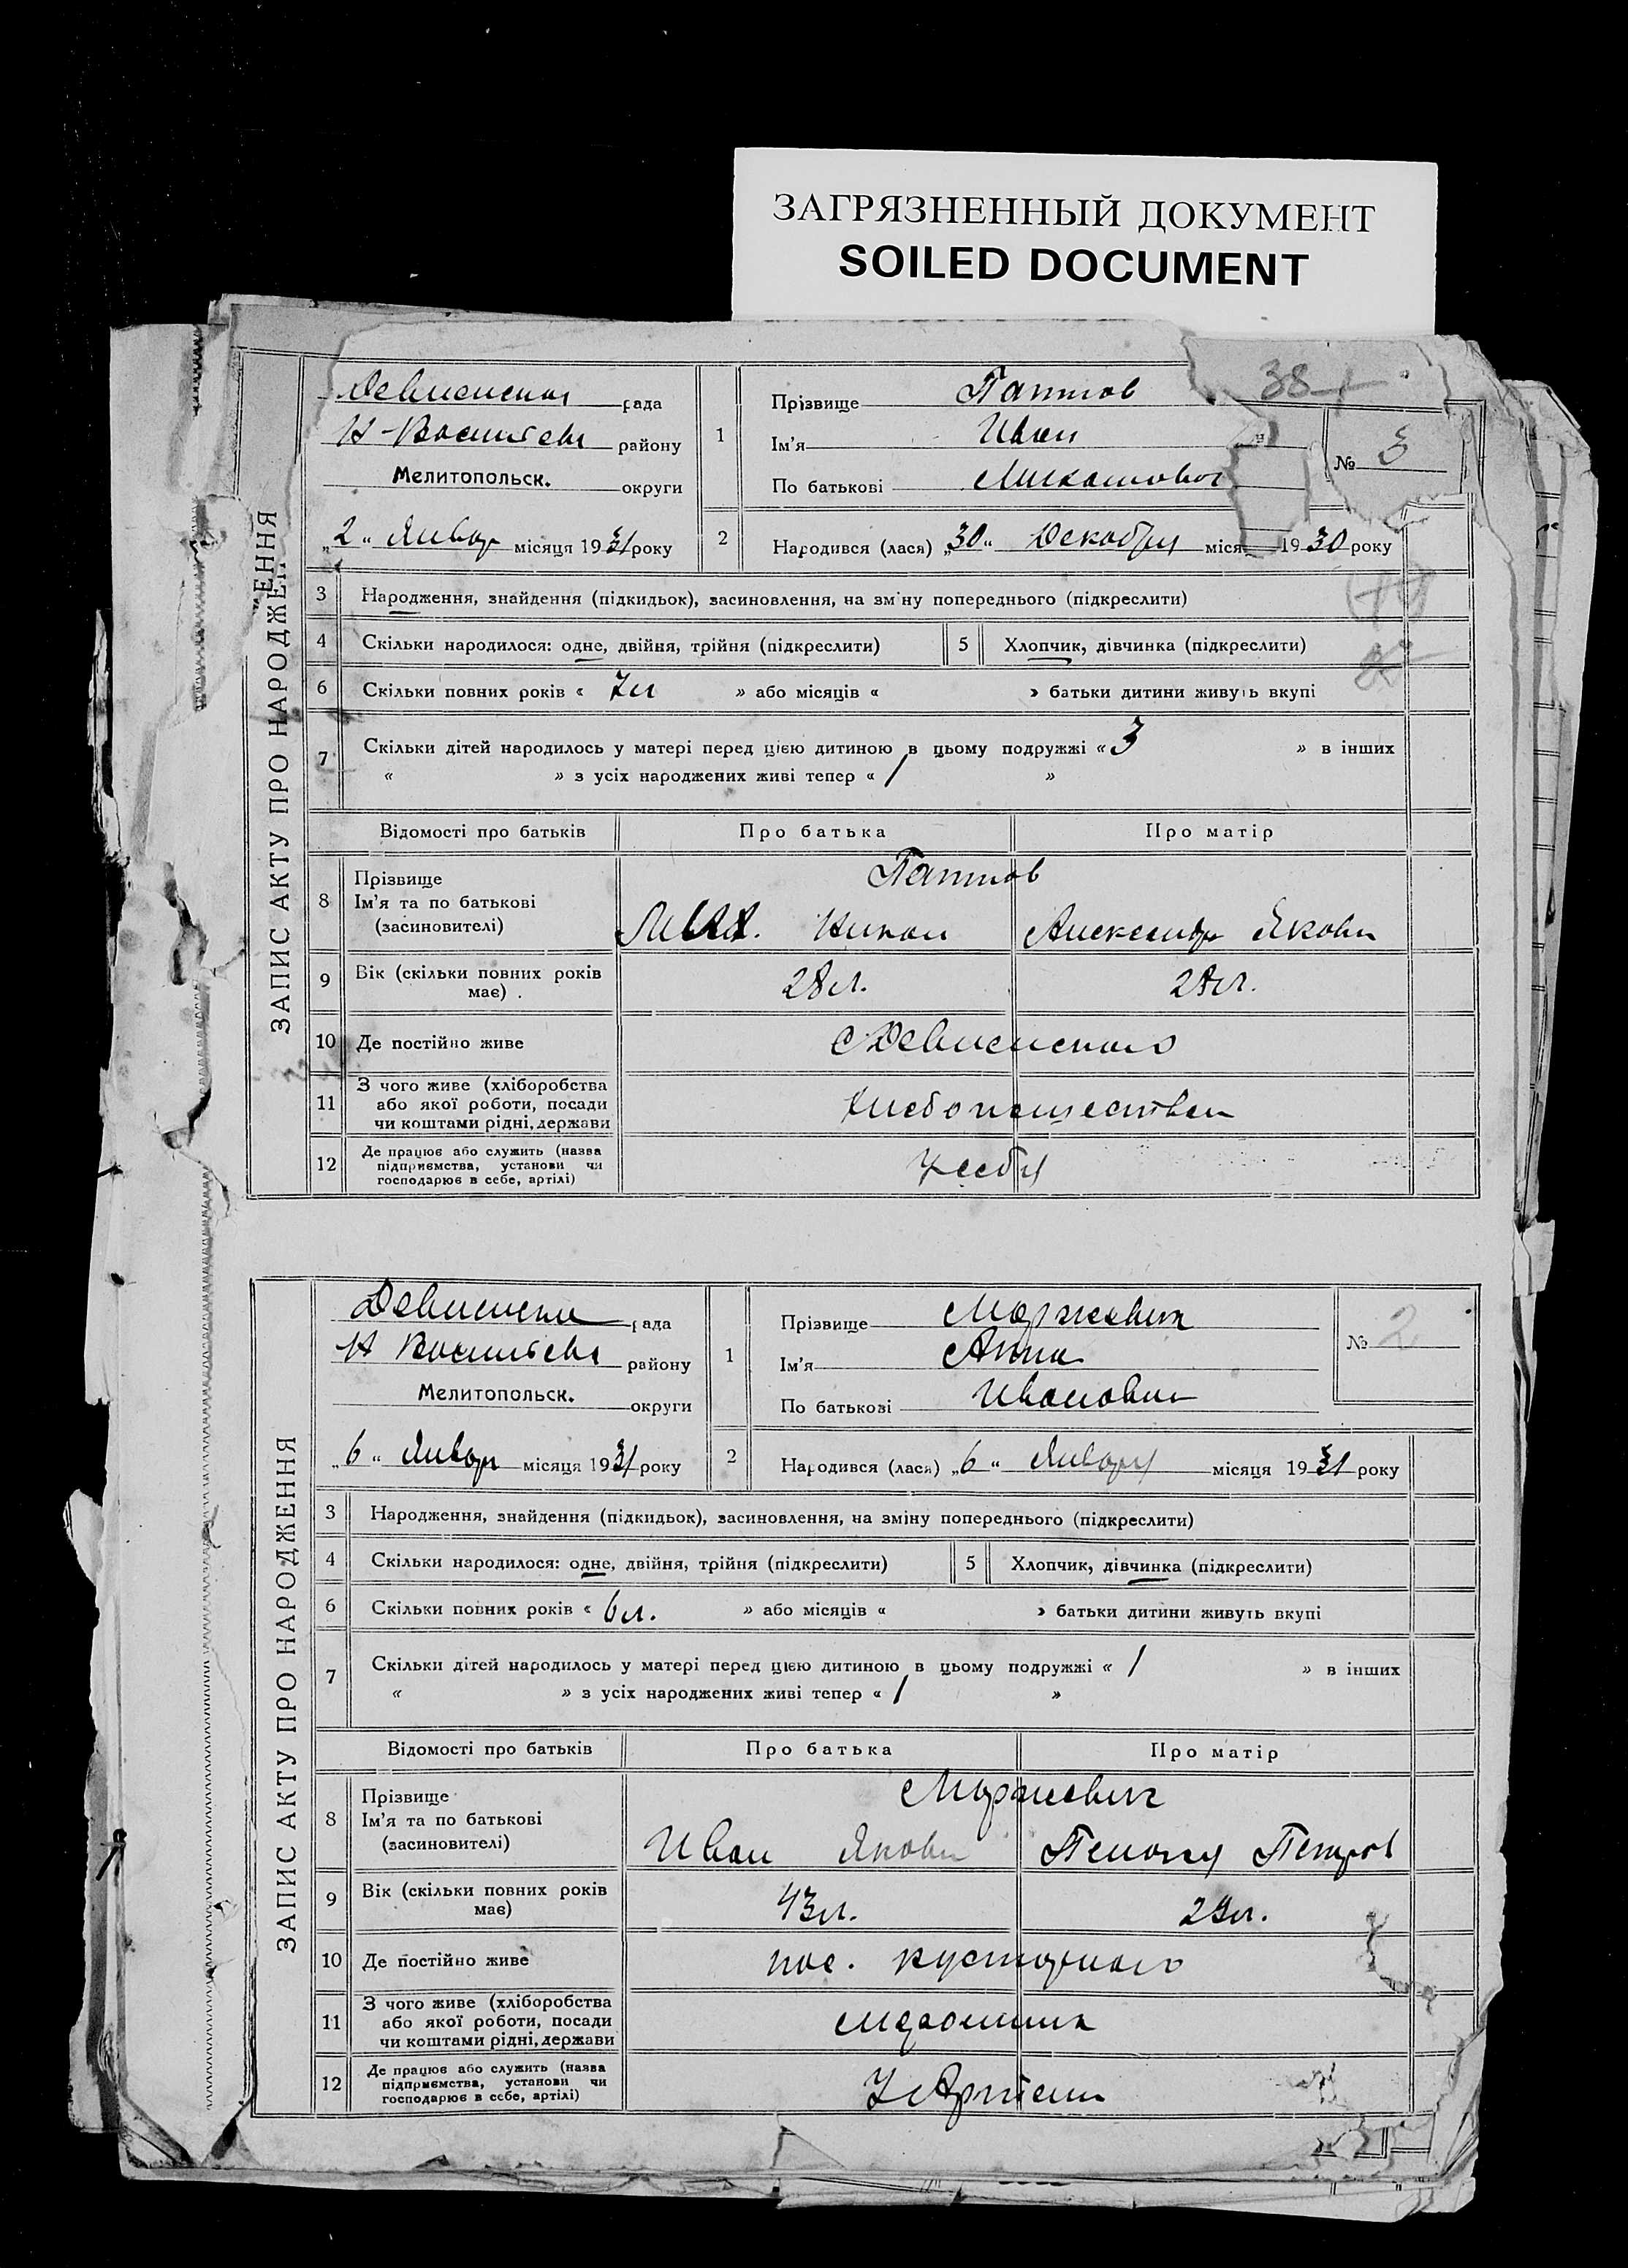 ЗАГРЯЗНЕННЫЙ ДОКУМЕНТ
SOILED DOCUMENT
38
ЗАПИС АКТУ ПРО НАРОДЖЕННЯ
рада
района
Мелитопольск. округи
„2“ Январ місяця 1931 року
1
Прізвище
Ім'я Иван
По батькові
№ 3
2
Народився (лася) „30“ Декабря міся 1930 року
3 Народження, знайдення (підкидьок), засиновлення, на зміну попереднього (підкреслити)
4 Скільки народилося: одне, двійня, трійня (підкреслити) 5 Хлопчик, дівчинка (підкреслити)
6 Скільки повних років « 7 л » або місяців « » батьки дитини живуть вкупі
7 Скільки дітей народилось у матері перед цією дитиною в цьому подружжі « 3 » в інших
« » з усіх народжених живі тепер « 1 »
Відомості про батьків Про батька Про матір
8 Прізвище
Ім'я та по батькові
(засиновителі)
Александр Якові
9 Вік (скільки повних років має) 28 л.
10 Де постійно живе
11 З чого живе (хліборобства
або якої роботи, посади
чи коштами рідні, держави
12 Де працює або служить (назва
підприємства, установи чи
господарює в себе, артілі)
У себя
ЗАПИС АКТУ ПРО НАРОДЖЕННЯ
рада
району
Мелитопольск. округи
„6“ Январ місяця 1931 року
1
Прізвище
Ім'я Анна
По батькові Ивановн
№ 2
2
Народився (лася) „6“ Января місяця 1931 року
3 Народження, знайдення (підкидьок), засиновлення, на зміну попереднього (підкреслити)
4 Скільки народилося: одне, двійня, трійня (підкреслити) 5 Хлопчик, дівчинка (підкреслити)
6 Скільки повних років « 6 л. » або місяців « » батьки дитини живуть вкупі
7 Скільки дітей народилось у матері перед цією дитиною в цьому подружжі « 1 » в інших
« » з усіх народжених живі тепер « 1 »
Відомості про батьків Про батька Про матір
8 Прізвище
Ім'я та по батькові
(засиновителі)
Иван Яковл Пелагея Петров
9 Вік (скільки повних років має) 43 л.
10 Де постійно живе пос. Кустарного
11 З чого живе (хліборобства
або якої роботи, посади
чи коштами рідні, держави
12 Де працює або служить (назва
підприємства, установи чи
господарює в себе, артілі)
У Артели